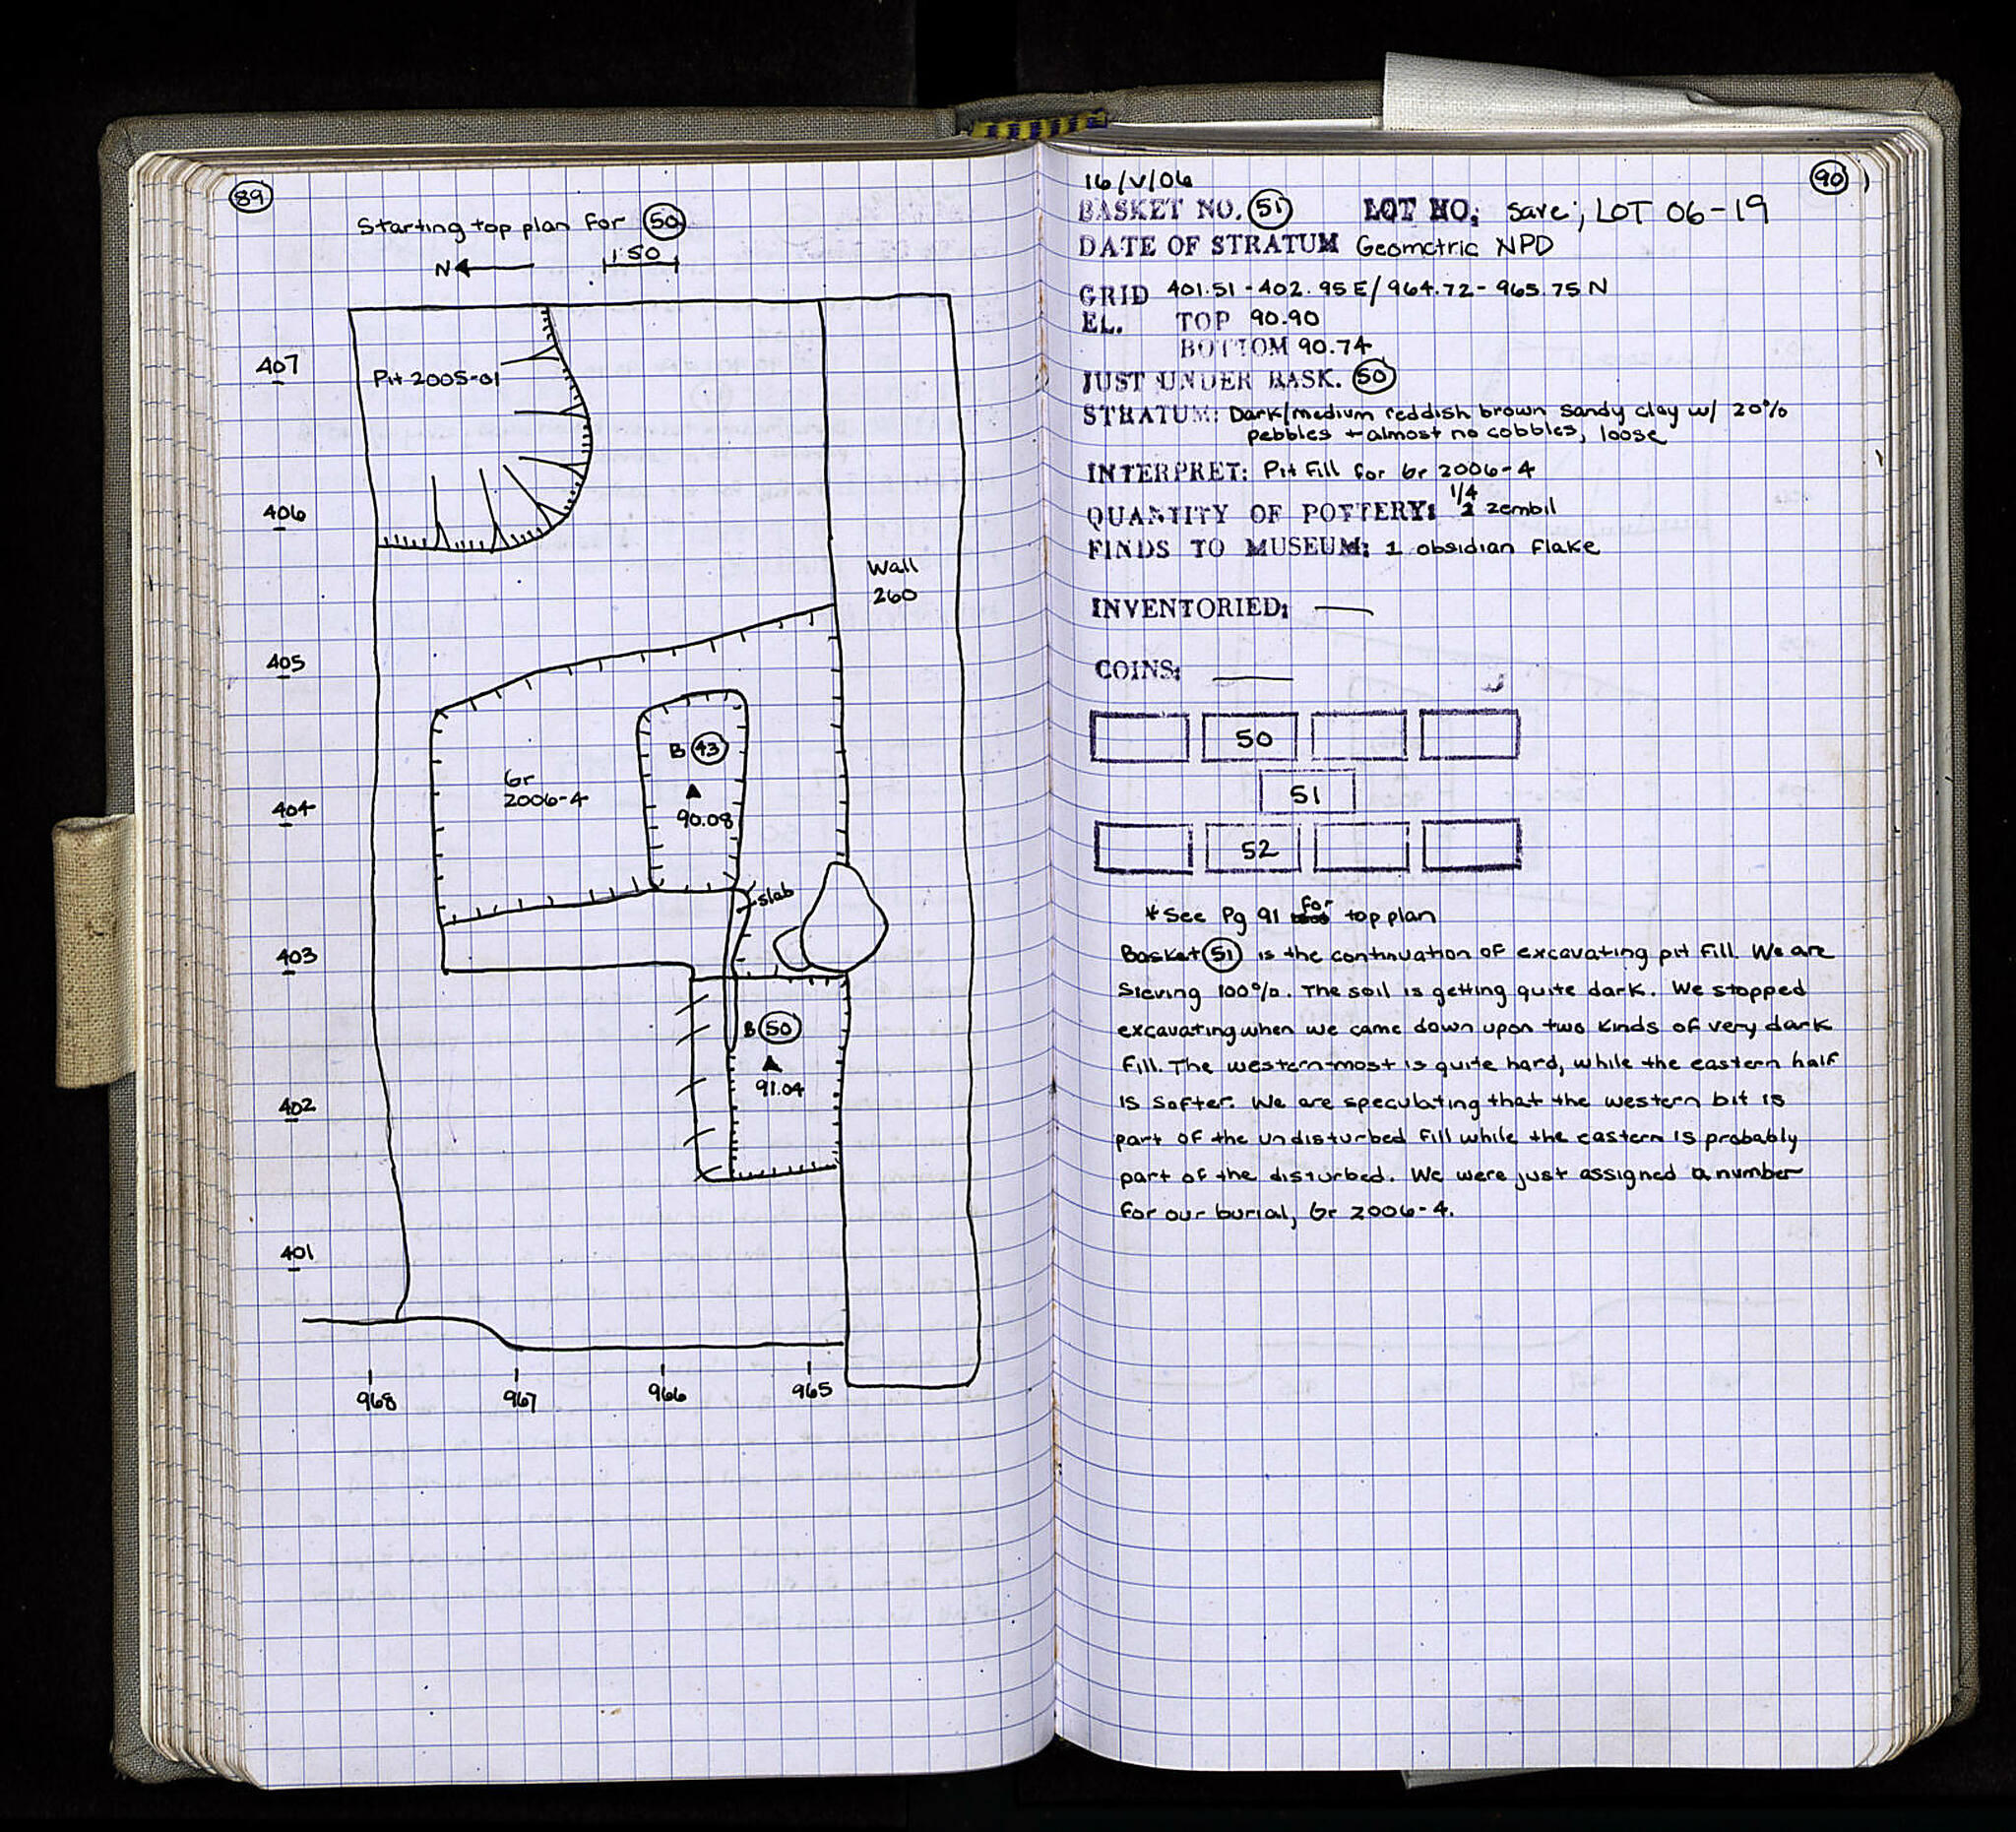 89
Starting top plan for 50
1:50
N
407
Pit 2005-01
406
Wall
260
405
B 43
Gr
2006-4
404
90.08
slab
403
B 50
91.04
402
401
968 967 966 965
90
16/V/06
BASKET NO. 51 LOT NO. save; LOT 06-19
DATE OF STRATUM Geometric NPD
GRID 401.51-402.95E/964.72-965.75N
EL. TOP 90.90
BOTTOM 90.74
JUST UNDER BASK. 50
STRATUM: Dark/medium reddish brown sandy clay w/ 20%
pebbles + almost no cobbles, loose
INTERPRET: Pit fill for Gr 2006-4
QUANTITY OF POTTERY: 1/4 zembil
FINDS TO MUSEUM: 1 obsidian flake
INVENTORIED: —
COINS: —
50
51
52
*See Pg 91 for top plan
Basket 51 is the continuation of excavating pit fill. We are
sieving 100%. The soil is getting quite dark. We stopped
excavating when we came down upon two kinds of very dark
fill. The westernmost is quite hard, while the eastern half
is softer. We are speculating that the western bit is
part of the undisturbed fill while the eastern is probably
part of the disturbed. We were just assigned a number
for our burial, Gr 2006-4.